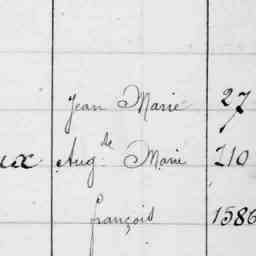 Jean Marie 27
ux Aug.de Marie 210
françois 1586